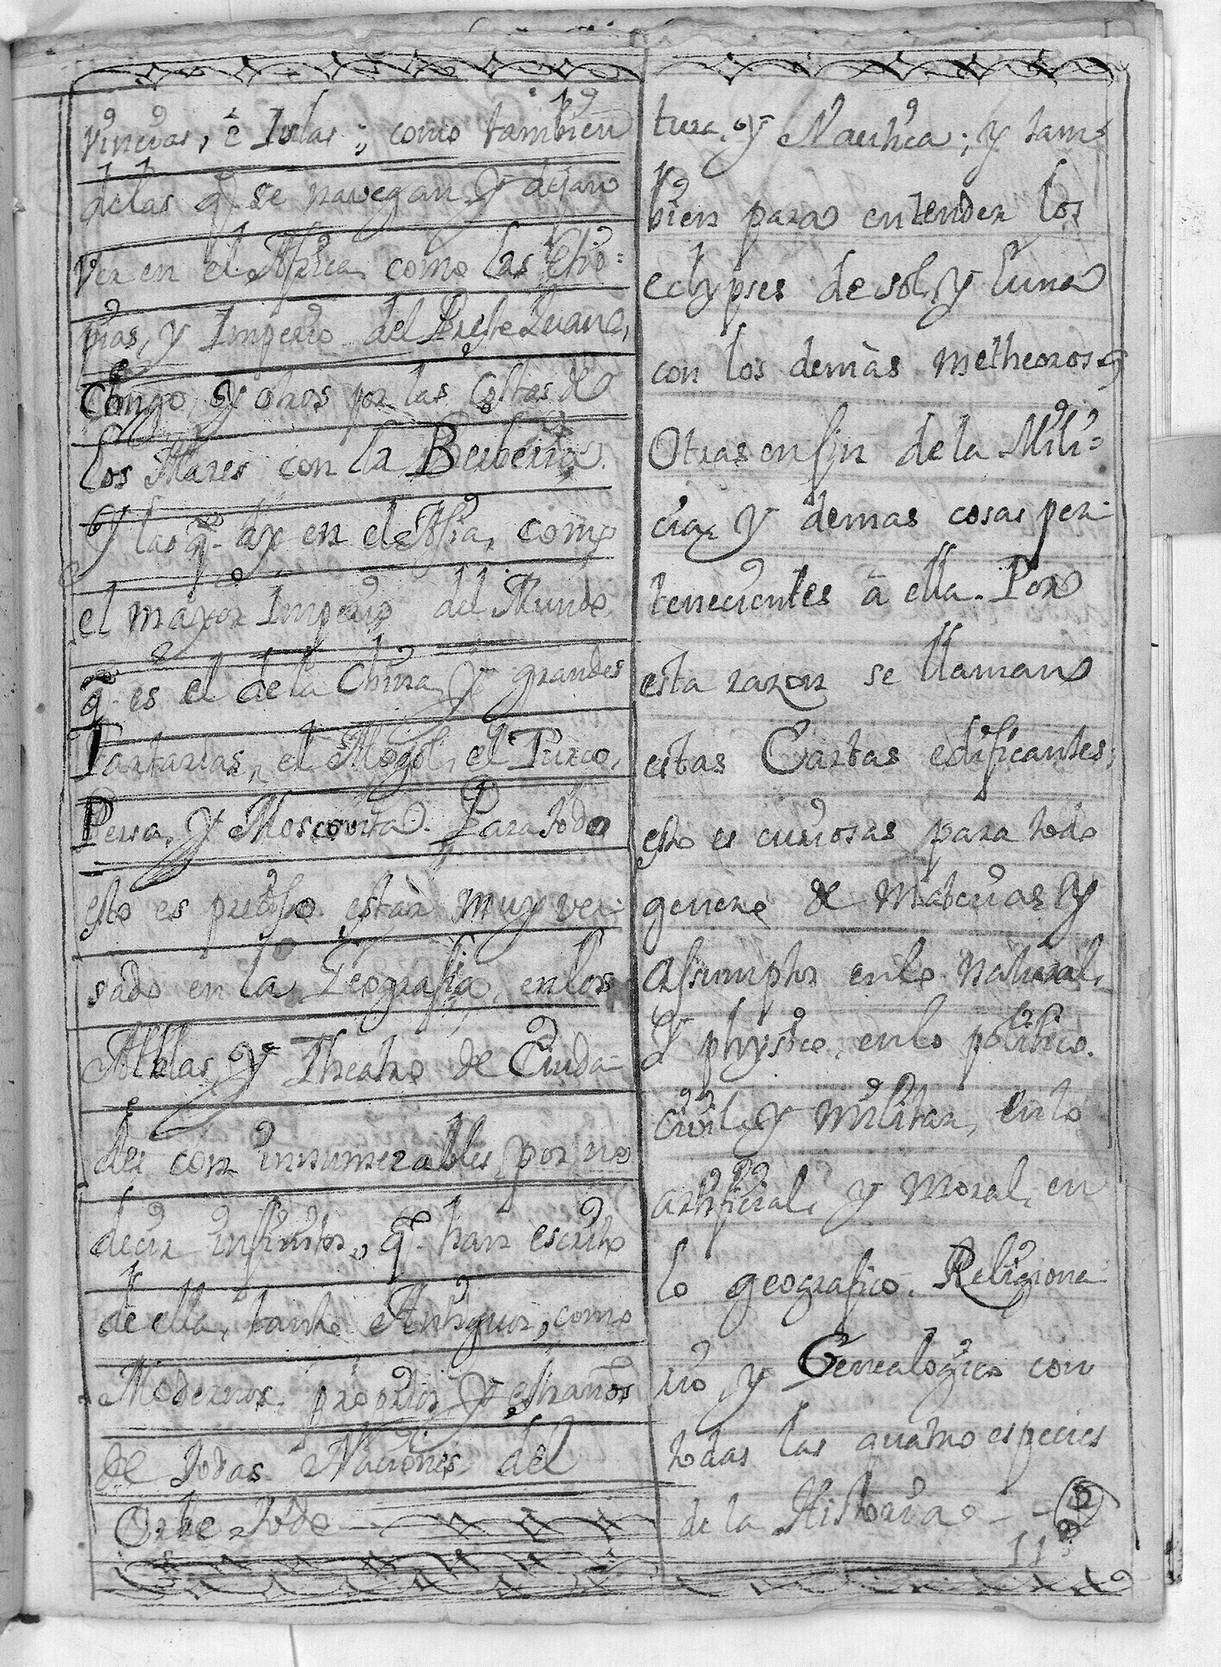 vincias, è Islas; como tambien
delas q̃. se navegan y dejan
ver en el Africa como las Ethio=
pias, y Imperio del Preste Juan,
Congo, y otros por las Costas de
los Mares con la Berberia.
Y las q̃. ay en el Asia, como
el mayor Imperio del Mundo
q̃. es el de la China, y grandes
Tartarias, el Mogol, el Turco,
Persa, y Moscovita. Para todo
esto es preciso estàr muy ver-
sado en la Geografia, enlos
Athlas y Theatro de Ciuda-
des con innumerables, por no
decir infinitos, q̃. han escrito
de ella, tanto Antiguos, como
Modernos, proprios, y estraños
de todas Naciones del
Orbe todo
tura, y Nautica; y tam-
bien para entender los
eclypses de sol, y luna
con los demàs metheoros, y
Otras en fin de la Mili=
cia, y demas cosas per-
tenecientes à ella. Por
esta razon se llaman
estas Cartas edificantes;
esto es curiosas para todo
genero de Materias y
assumptos enlo natural,
y physico, enlo politico,
civil, y militar, enlo
artificial, y moral, en
lo geografico, Religiona
rio, y Genealogico con
todas las quatro especies
de la Historia
11